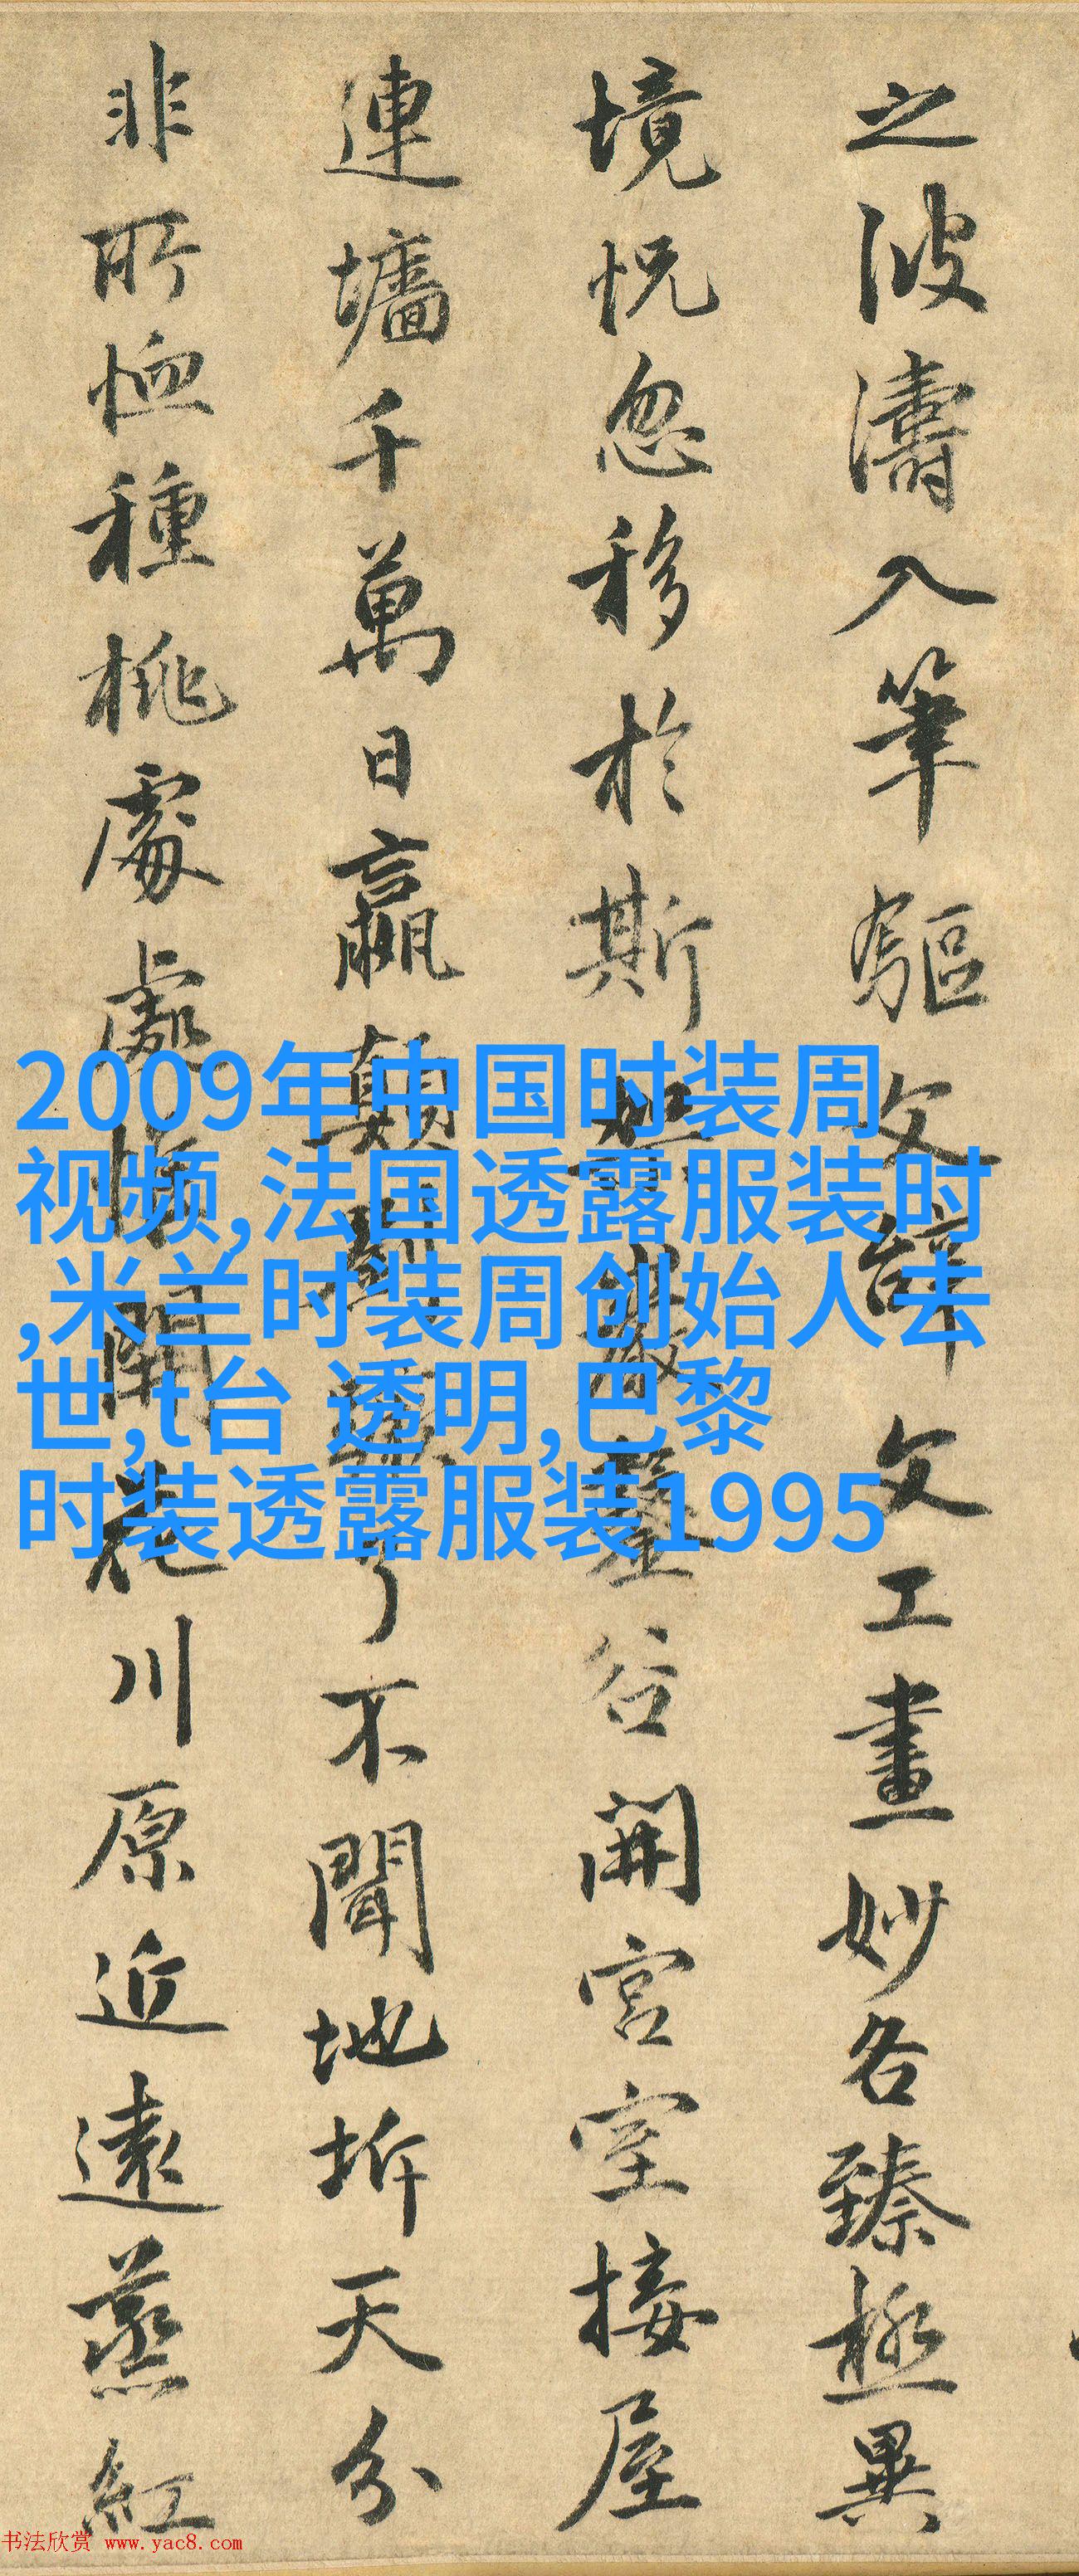 之波濤入筆驅文辭文工畫妙各臻極異
境怳忽移於斯架巖鑿谷開宮室接屋
連墻千萬日嬴顛劉蹶了不聞地坼天分
非所恤種桃處處惟開花川原近遠蒸紅
2009年中国时装周
视频,法国透露服装时
,米兰时装周创始人去
世,t台 透明,巴黎
时装透露服装1995
书法欣赏 www.yac8.com